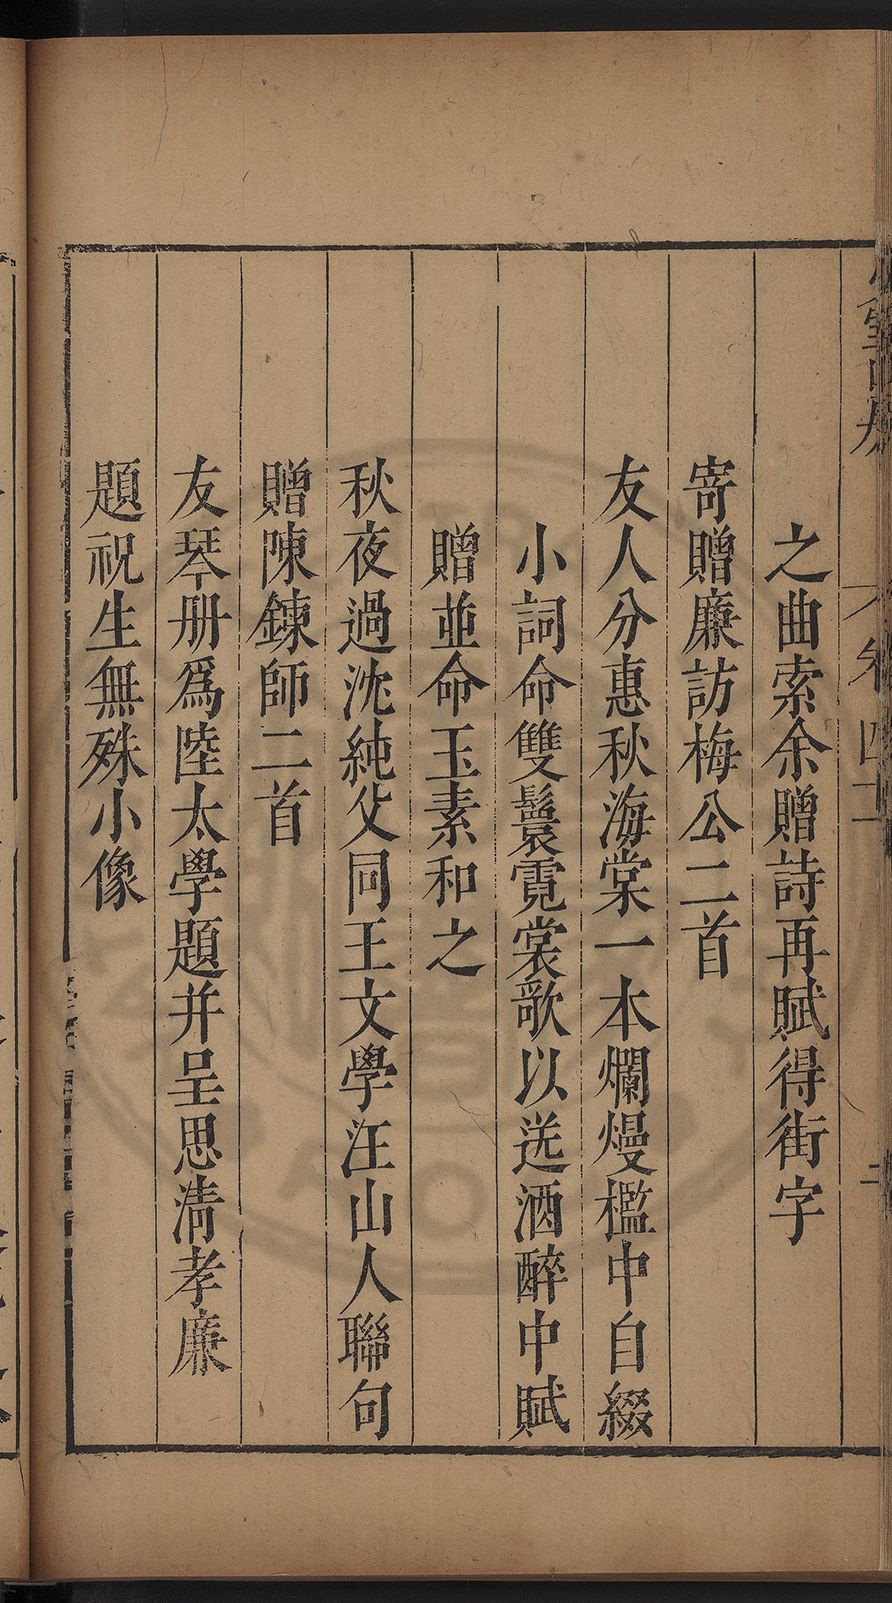 之曲索余贈詩再賦得街字
寄贈廉訪梅公二首
友人分惠秋海棠一本爛熳檻中自綴
小詞命雙鬟霓裳歌以送酒醉中賦
贈並命玉素和之
秋夜過沈純父同王文學汪山人聯句
贈陳鍊師二首
友琴册爲陸太學題并呈思清孝廉
題祝生無殊小像